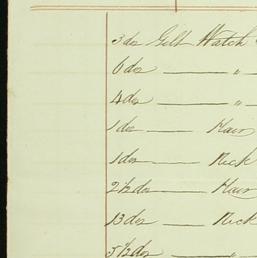 3 doz Gilt Watch
6 doz —— "
4 doz —— "
1 doz —— Hair
1 doz —— Neck
2½ doz —— Hair
13 doz —— Neck
5½ doz —— "